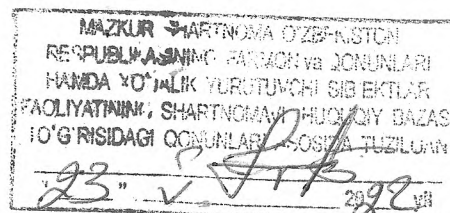 MAZKUR SHARTNOMA O'ZBEKISTON
RESPUBLIKASINING FARMON va QONUNLARI
HAMDA XO'JALIK YURUTUVCHI SIB EKTLAR
FAOLIYATINING SHARTNOMAVIY HUQUQIY BAZASI
TO'G'RISIDAGI QONUNLARI ASOSIDA TUZILGAN
"23" 2022 yil